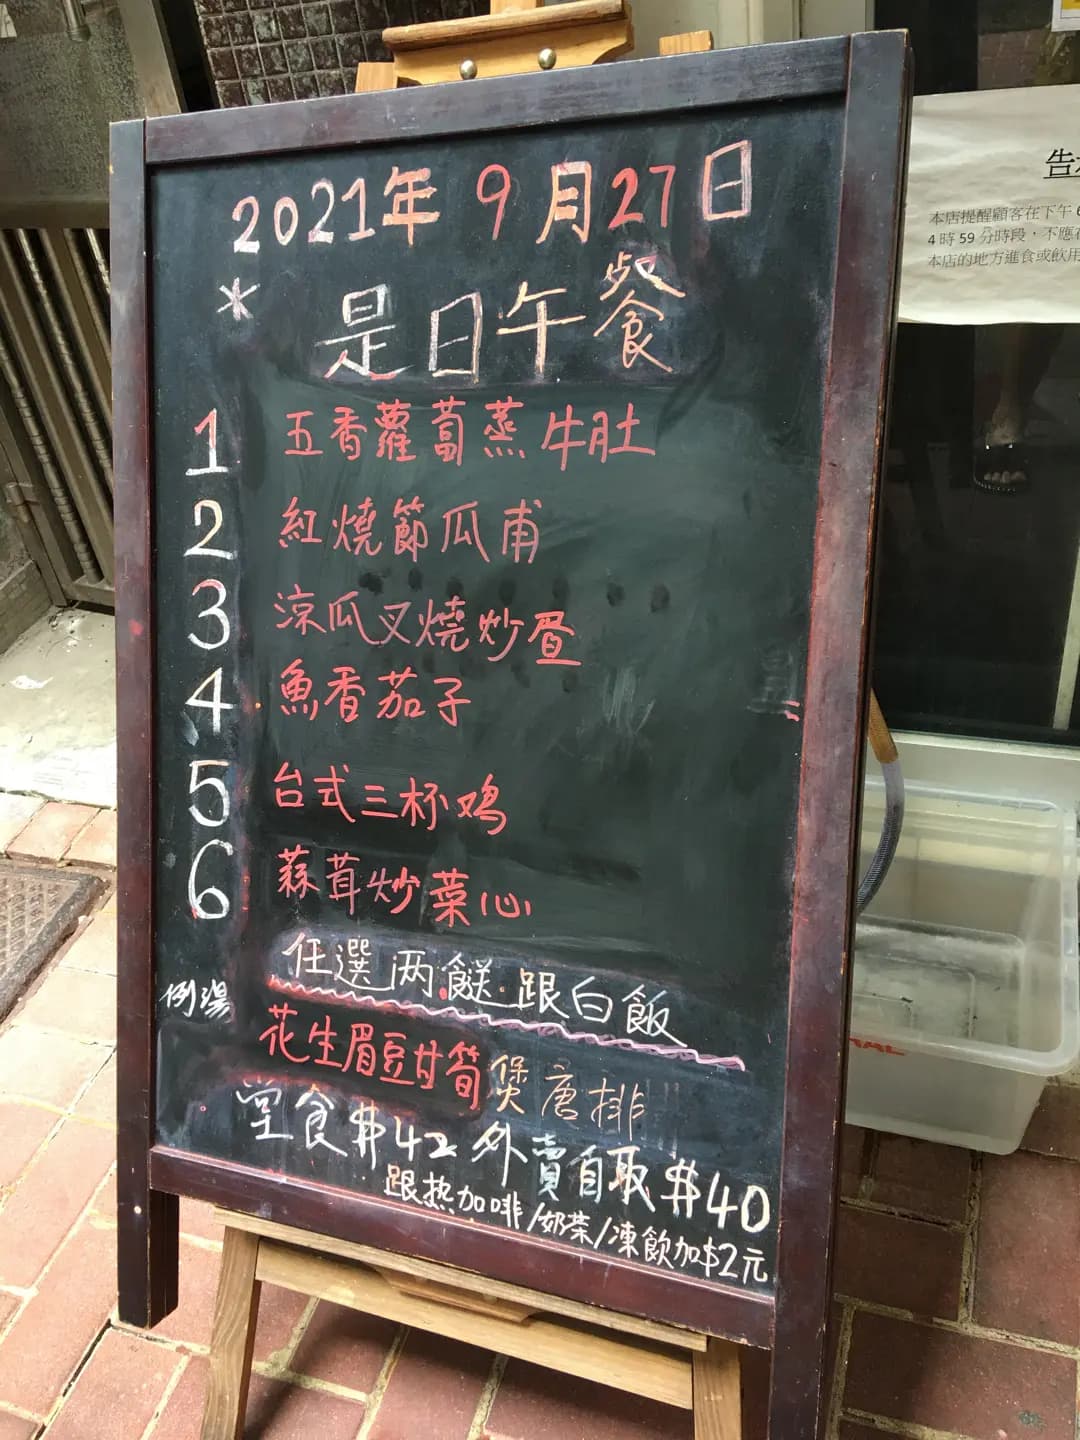 2021年9月27日
* 是日午餐
1 五香蘿蔔蒸牛肚
2 紅燒節瓜甫
3 涼瓜叉燒炒蛋
4 魚香茄子
5 台式三杯鸡
6 蒜茸炒菜心
任選两餸跟白飯
例湯
花生眉豆甘筍煲唐排
堂食$42 外賣自取$40
跟热加啡/奶茶/凍飲加$2元
告
本店提醒顧客在下午6
4時59分時段，不應在
本店的地方進食或飲用